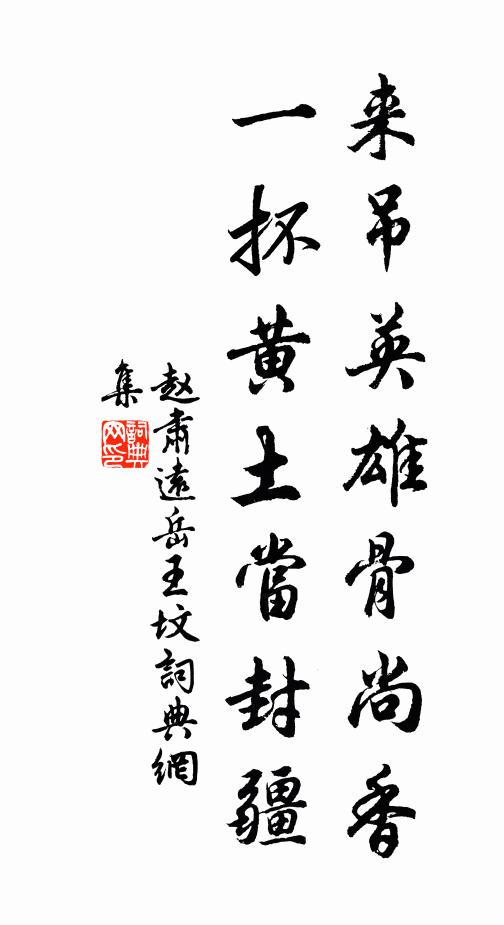 来吊英雄骨尚香
一抔黄土當封疆
赵肃遠岳王坟詞典網
集
詞典
网印